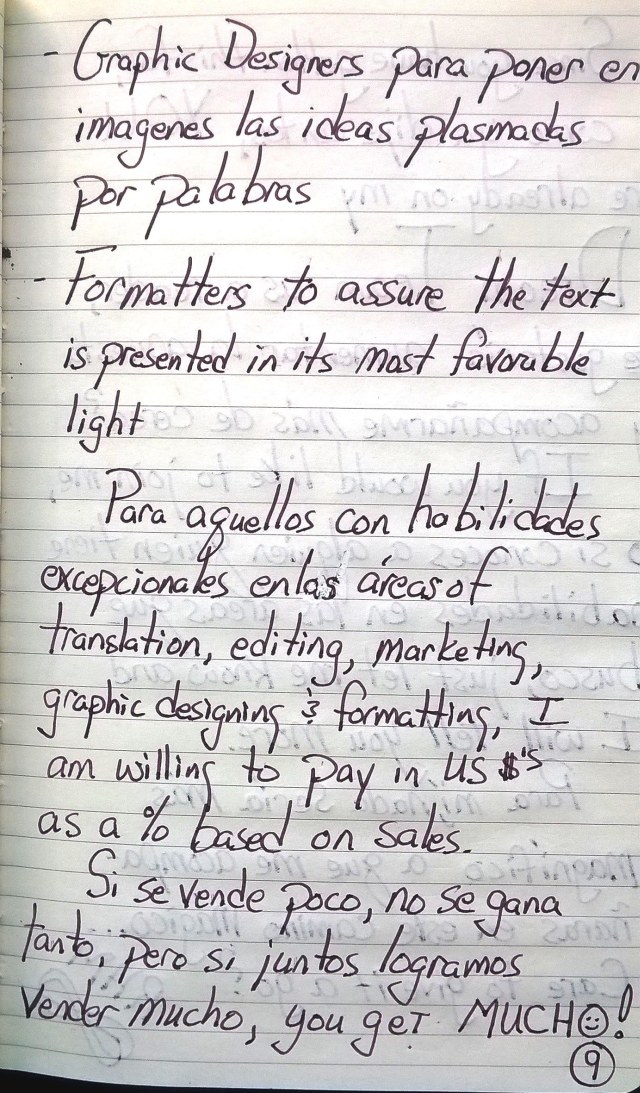 - Graphic Designers para poner en
imagenes las ideas plasmadas
por palabras
- Formatters to assure the text
is presented in its most favorable
light
Para aquellos con habilidades
excepcionales en las áreas of
translation, editing, marketing,
graphic designing & formatting, I
am willing to pay in US $'s
as a % based on sales.
Si se vende poco, no se gana
tanto, pero si juntos logramos
vender mucho, you get MUCHO!
9